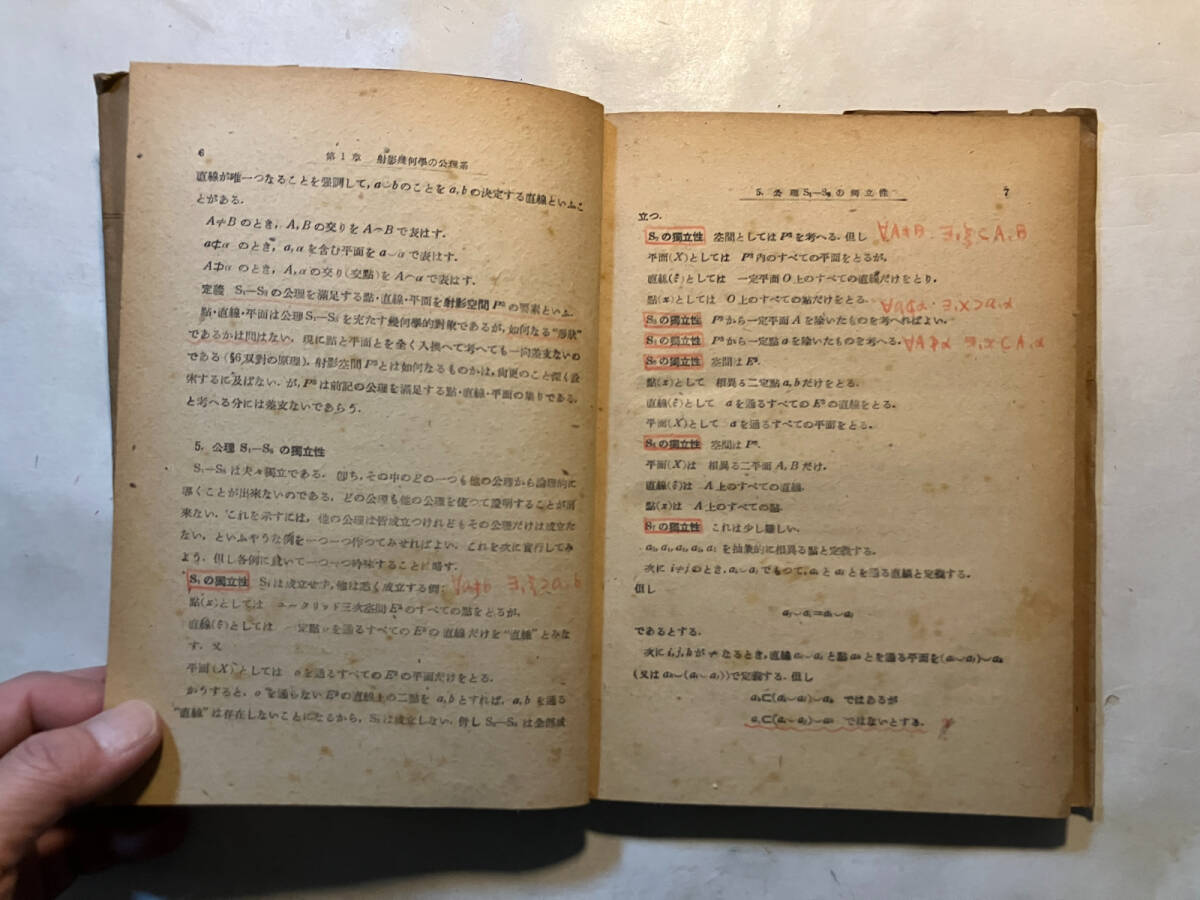 6
第1章 射影幾何學の公理系
直線が唯一つなることを强調して, a⌣bのことをa, bの決定する直線といふこ
とがある.
A≠Bのとき, A, Bの交りをA⌢Bで表はす.
a⊄αのとき, a, αを含む平面をa⌣αで表はす.
A⊅αのとき, A, αの交り(交點)をA⌢αで表はす.
定義 S₁—S₈の公理を滿足する點・直線・平面を射影空間P³の要素といふ.
點・直線・平面は公理S₁—S₈を充たす幾何學的對象であるが, 如何なる“形狀”
であるかは問はない. 現に點と平面とを全く入換へて考へても一向差支ないの
である(§6双對の原理). 射影空間P³とは如何なるものかは, 尙更のこと深く
ずるに及ばない. が, P³は前記の公理を滿足する點・直線・平面の集りである,
と考へる分には差支ないであらう.
5. 公理S₁—S₈の獨立性
S₁—S₈は夫々獨立である. 卽ち, その中のどの一つも他の公理から論理的に
導くことが出來ないのである. どの公理も他の公理を使つて證明することが出
來ない. これを示すには, 他の公理は皆成立つけれどもその公理だけは成立た
ない, といふやうな例を一つ一つ作つてみせればよい. これを次に實行してみ
よう. 但し各例に就いて一つ一つ吟味することは略す.
S₁の獨立性 S₁は成立せず, 他は悉く成立する例:
點(x)としては ユークリッド三次空間E³のすべての點をとるが,
直線(ξ)としては 一定點oを通るすべてのE³の直線だけを“直線”とみな
す. 又
平面(X)としては oを通るすべてのE³の平面だけをとる.
かうすると, oを通らないE³の直線上の二點をa, bとすれば, a, bを通る
“直線”は存在しないことになるから, S₁は成立しない. 併しS₂—S₈は全然成
5. 公理S₁—S₈の獨立性
7
立つ.
S₂の獨立性 空間としてはP³を考へる. 但し
平面(X)としては P³內のすべての平面をとるが,
直線(ξ)としては 一定平面O上のすべての直線だけをとり,
點(x)としては O上のすべての點だけをとる.
の獨立性 P³から一定平面Aを除いたものを考へればよい.
の獨立性 P³から一定點aを除いたものを考へる.
の獨立性 空間はE³.
點(x)として 相異る二定點a, bだけをとる.
直線(ξ)として aを通るすべてのE³の直線をとる.
平面(X)として aを通るすべての平面をとる.
の獨立性 空間はP³.
平面(X)は 相異る二平面A, Bだけ.
直線(ξ)は A上のすべての直線.
點(x)は A上のすべての點.
S₇の獨立性 これは少し難しい.
a₀, a₁, a₂, a₃, a₄を抽象的に相異る點と定義する.
次にi≠jのとき, aᵢ⌣aⱼでもつて, aᵢとaⱼとを通る直線と定義する.
但し
aᵢ⌣aⱼ=aⱼ⌣aᵢ
であるとする.
次にi, j, kが≠なるとき, 直線aᵢ⌣aⱼと點aₖとを通る平面を(aᵢ⌣aⱼ)⌣aₖ
(又はaₖ⌣(aᵢ⌣aⱼ))で定義する. 但し
ではあるが
ではないとする.